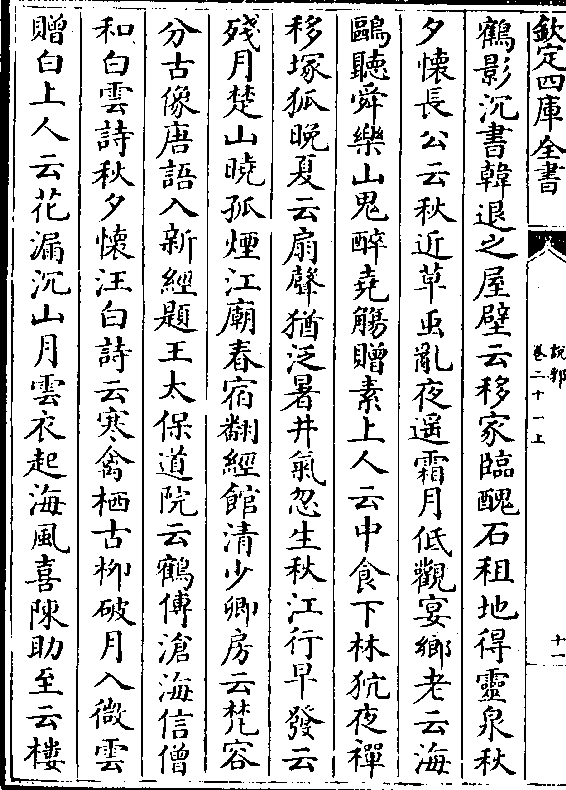 欽定四庫全書
說郛
卷二十一上
十一
鶴影沉書韓退之屋壁云移家臨醜石租地得靈泉秋
夕懷長公云秋近草虫亂夜遥霜月低觀宴鄉老云海
鷗聽舜樂山鬼醉堯觴贈素上人云中食下林狖夜禪
移塚狐晚夏云扇聲猶泛暑井氣忽生秋江行早發云
殘月楚山曉孤煙江廟春宿翻經館清少卿房云梵容
分古像唐語入新經題王太保道院云鶴傳滄海信僧
和白雲詩秋夕懷汪白詩云寒禽栖古柳破月入微雲
贈白上人云花漏沉山月雲衣起海風喜陳助至云樓